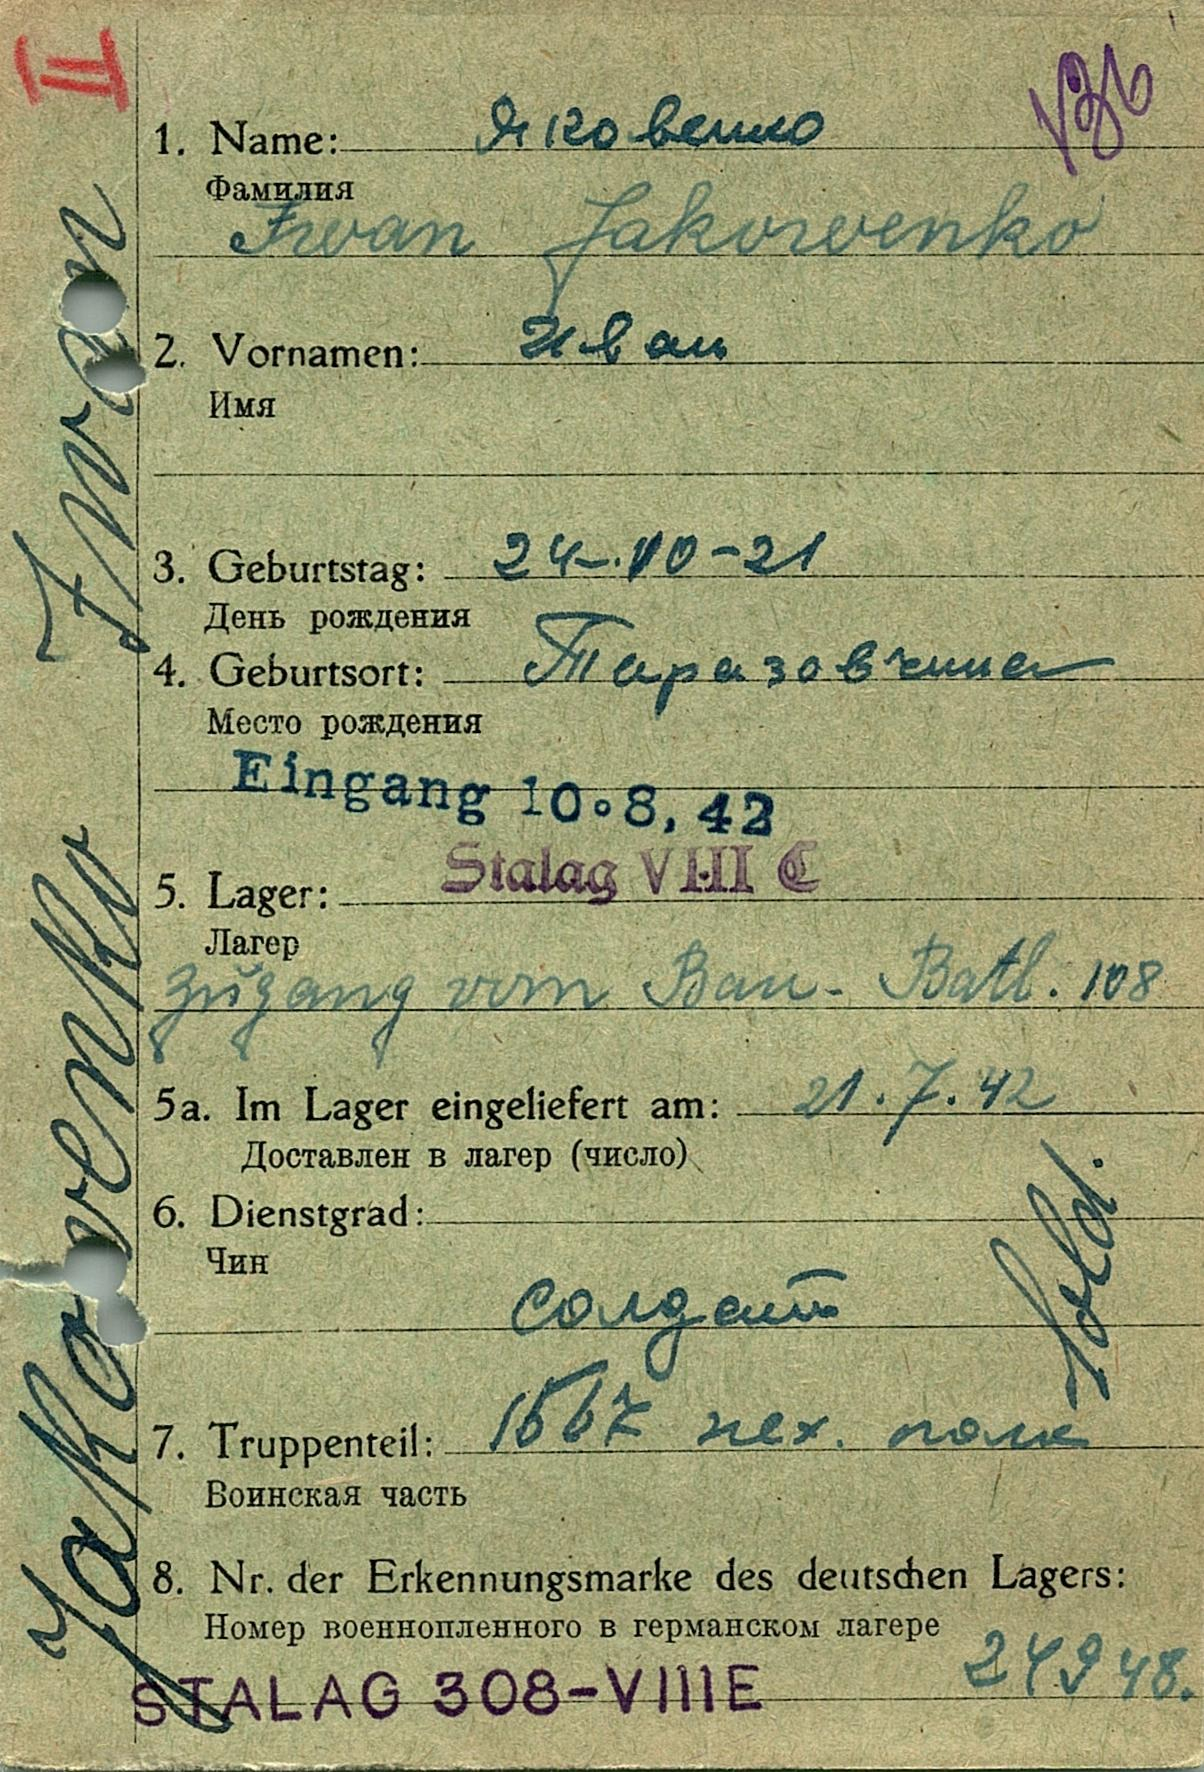 II
1. Name: Яковенко
Фамилия
Iwan Jakowenko
2. Vornamen: Иван
Имя
3. Geburtstag: 24-10-21
День рождения
4. Geburtsort: Таразовчина
Место рождения
Eingang 10.8.42
Stalag VIII C
5. Lager:
Лагер
Zugang vom Bau-Batl. 108
5a. Im Lager eingeliefert am: 21.7.42
Доставлен в лагер (число)
6. Dienstgrad:
Чин
солдат
Sold.
7. Truppenteil: пех. полк
Воинская часть
8. Nr. der Erkennungsmarke des deutschen Lagers:
Номер военнопленного в германском лагере
24948.
STALAG 308-VIIIE
Jakovenko Iwan